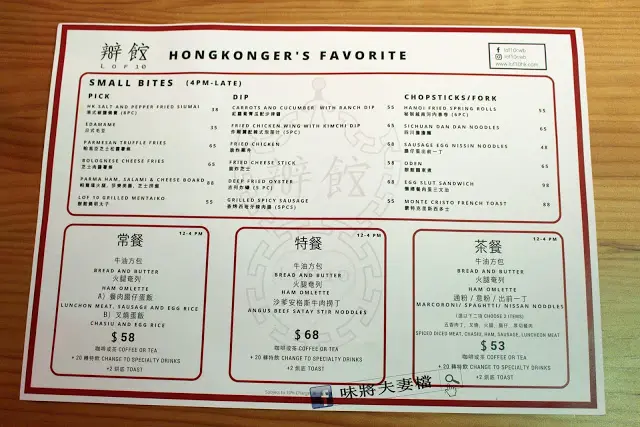 辦館
LOF10
HONGKONGER'S FAVORITE
lof10cwb
lof10cwb
www.lof10hk.com
SMALL BITES (4PM-LATE)
PICK
HK SALT AND PEPPER FRIED SIUMAI 38
EDAMAME 35
日式毛豆
PARMESAN TRUFFLE FRIES 65
BOLOGNESE CHEESE FRIES 65
芝士肉醬薯條
PARMA HAM, SALAMI & CHEESE BOARD 88
LOF 10 GRILLED MENTAIKO
DIP
CARROTS AND CUCUMBER WITH RANCH DIP 55
FRIED CHICKEN WING WITH KIMCHI DIP
FRIED CHICKEN
FRIED CHEESE STICK
炸芝士
DEEP FRIED OYSTER 68
吉列炸蠔 (5 PC)
GRILLED SPICY SAUSAGE 55
CHOPSTICKS/FORK
HANOI FRIED SPRING ROLLS 55
SICHUAN DAN DAN NOODLES 65
四川擔擔麵
SAUSAGE EGG NISSIN NOODLES 48
腸仔蛋出前一丁
ODEN 65
EGG SLUT SANDWICH 98
MONTE CRISTO FRENCH TOAST 88
12-4 PM
常餐
牛油方包
BREAD AND BUTTER
火腿奄列
HAM OMLETTE
A) 餐肉腸仔蛋飯
LUNCHON MEAT, SAUSAGE AND EGG RICE
B) 叉燒蛋飯
CHASIU AND EGG RICE
$58
咖啡或茶 COFFEE OR TEA
+20 轉特飲 CHANGE TO SPECIALTY DRINKS
+2 烘底 TOAST
12-4 PM
特餐
牛油方包
BREAD AND BUTTER
火腿奄列
HAM OMLETTE
沙爹安格斯牛肉撈丁
ANGUS BEEF SATAY STIR NOODLES
$68
咖啡或茶 COFFEE OR TEA
+20 轉特飲 CHANGE TO SPECIALTY DRINKS
+2 烘底 TOAST
12-4 PM
茶餐
牛油方包
BREAD AND BUTTER
火腿奄列
HAM OMLETTE
通粉 / 意粉 / 出前一丁
MARCORONI/ SPAGHTTI/ NISSAN NOODLES
(選以下二項 CHOOSE 2 ITEMS)
SPICED DICED MEAT, CHASIU, HAM, SAUSAGE, LUNCHEON MEAT
$53
咖啡或茶 COFFEE OR TEA
+20 轉特飲 CHANGE TO SPECIALTY DRINKS
+2 烘底 TOAST
味將夫妻檔